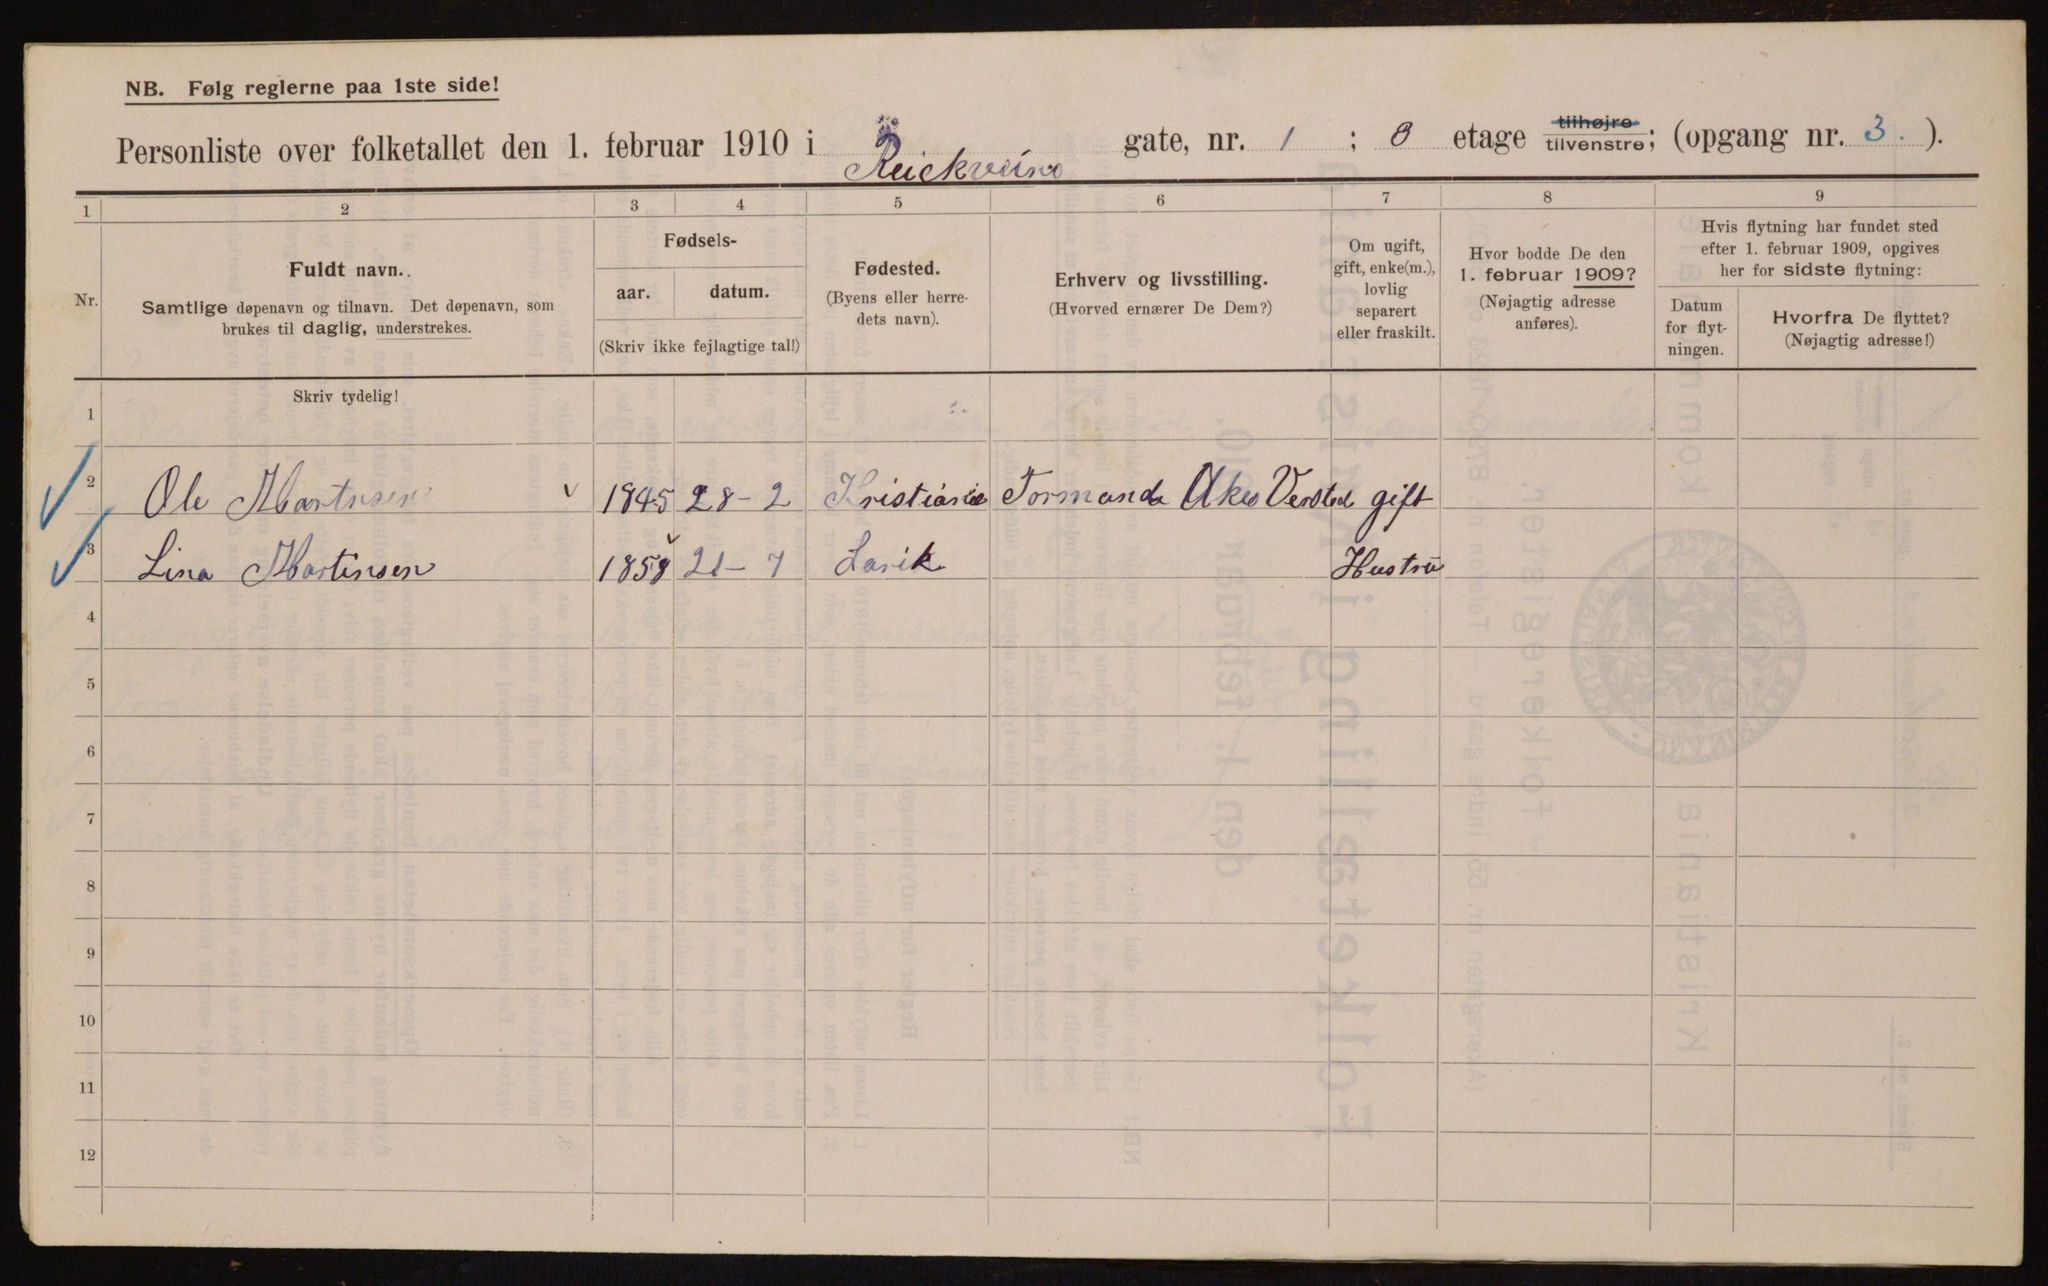 NB. Følg reglerne paa 1ste side!
Personliste over folketallet den 1. februar 1910 i Reickveien gate, nr. 1 ; 0 etage tilhøjre tilvenstre; (opgang nr. 3. ).
1 2 3 4 5 6 7 8 9
Nr.
Fuldt navn.
Samtlige døpenavn og tilnavn. Det døpenavn, som
brukes til daglig, understrekes.
Fødsels-
aar. datum.
(Skriv ikke fejlagtige tal!)
Fødested.
(Byens eller herre-
dets navn).
Erhverv og livsstilling.
(Hvorved ernærer De Dem?)
Om ugift,
gift, enke(m.),
lovlig
separert
eller fraskilt.
Hvor bodde De den
1. februar 1909?
(Nøjagtig adresse
anføres).
Hvis flytning har fundet sted
efter 1. februar 1909, opgives
her for sidste flytning:
Datum
for flyt-
ningen.
Hvorfra De flyttet?
(Nøjagtig adresse!)
Skriv tydelig!
1
2 Ole Martinsen 1845 28-2 Kristiania Formand Akes Versted gift
3 Lina Martinsen 1858 21-7 Larik Hustru
4
5
6
7
8
9
10
11
12